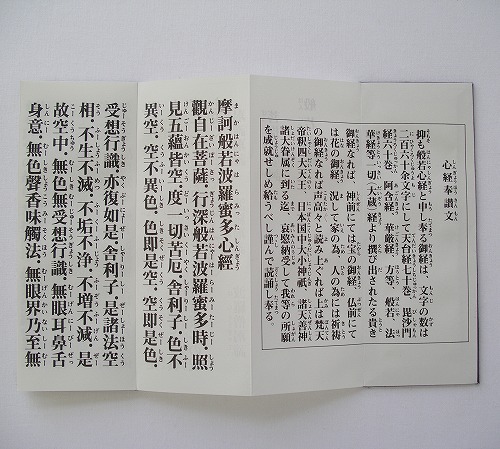 心経奉讃文
抑も般若心経と申奉る御経は、文字の数は
二百六十余文字にて天台経七十巻、毘沙門
経六十巻、阿含経、華厳経、方等、般若、法
華経等一切大蔵経より撰び出されたる貴き
御経なれば、神前にては宝の御経、仏前にて
は花の御経、況して家の為、人の為には祈祷
の御経なれば声高々と読み上ぐれば上は梵天
帝釈四大天王、日本国中大小神祇、諸天善神
諸大眷属に到る迄、哀愍納受して我等の所願
を成就せしめ給うべし謹んで読誦し奉る。
摩訶般若波羅蜜多心經
觀自在菩薩。行深般若波羅蜜多時。照
見五蘊皆空。度一切苦厄。舎利子。色不
異空。空不異色。色即是空。空即是色。
受想行識。亦復如是。舎利子。是諸法空
相。不生不滅。不垢不淨。不增不減。是
故空中。無色無受想行識。無眼耳鼻舌
身意。無色聲香味觸法。無眼界乃至無